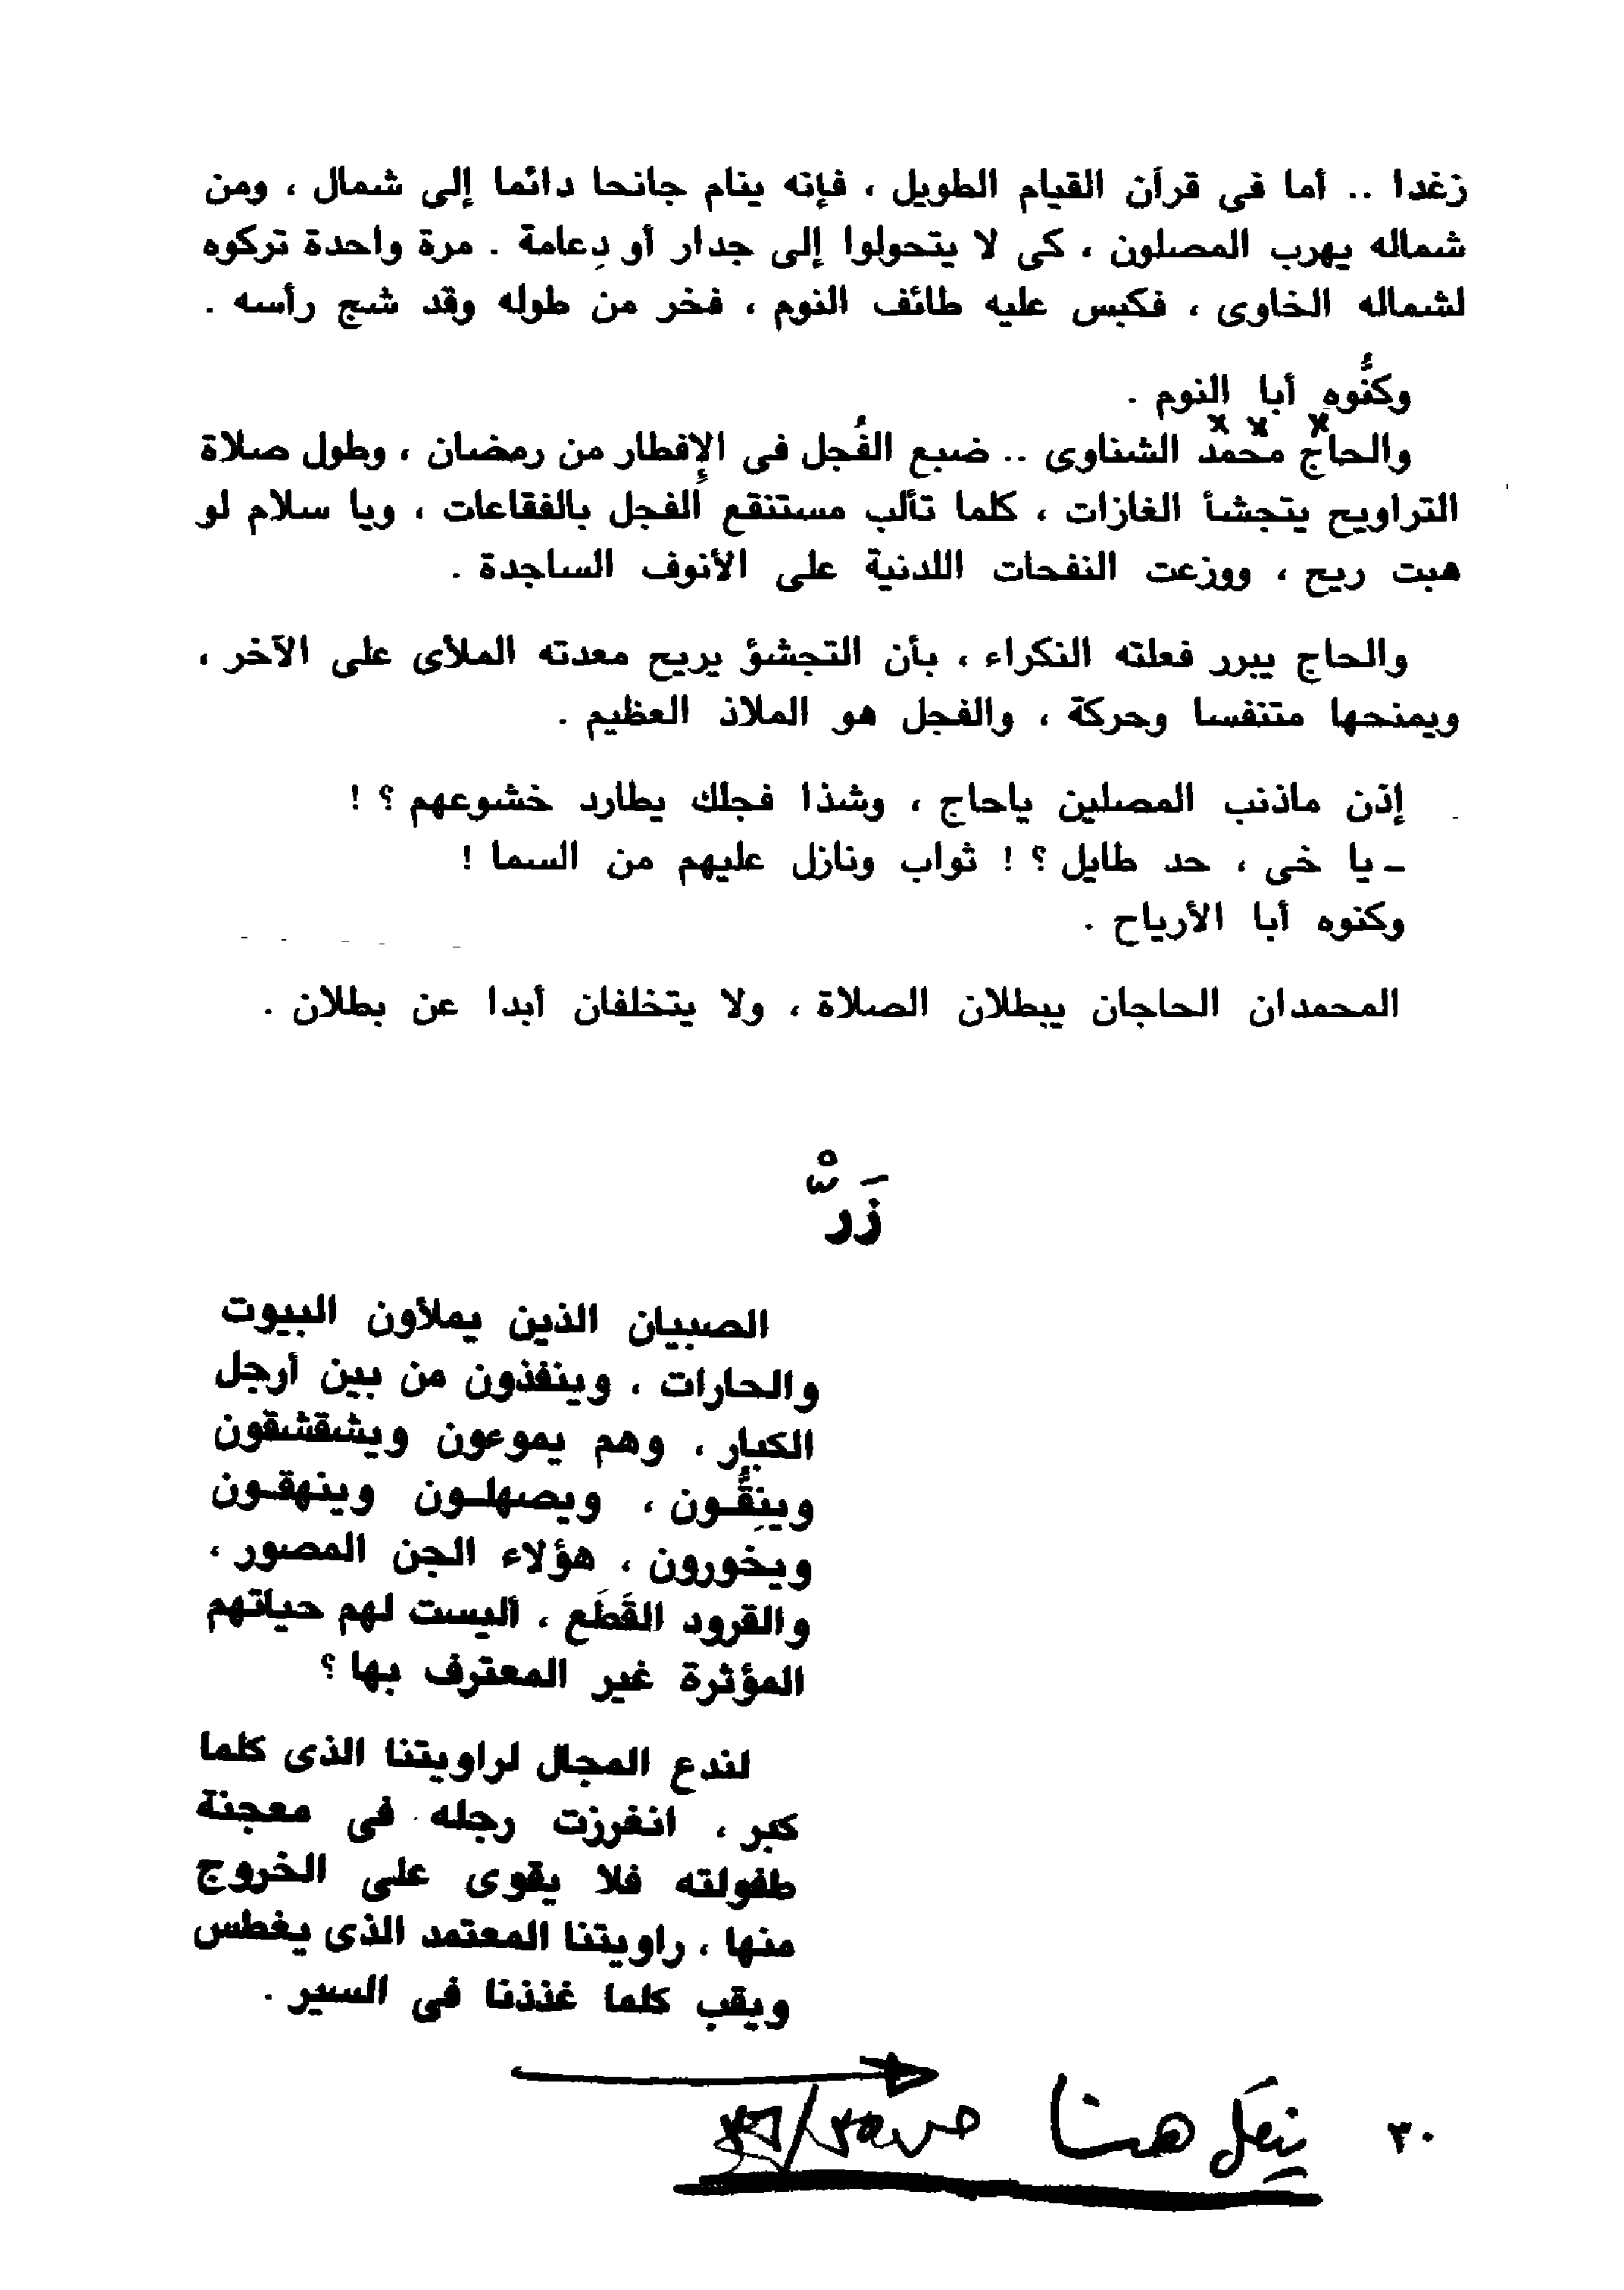 زغدا .. أما فى قرآن القيام الطويل ، فإنه ينام جانحا دائما إلى شمال ، ومن
شماله يهرب المصلون ، كى لا يتحولوا إلى جدار أو دِعامة . مرة واحدة تركوه
لشماله الخاوى ، فكبس عليه طائف النوم ، فخر من طوله وقد شج رأسه .
وكنُّوه أبا النوم .
× × ×
والحاج محمد الشناوى .. ضبع الفُجل فى الإفطار من رمضان ، وطول صلاة
التراويح يتجشأ الغازات ، كلما تألب مستنقع الفجل بالفقاعات ، ويا سلام لو
هبت ريح ، ووزعت النفحات اللدنية على الأنوف الساجدة .
والحاج يبرر فعلته النكراء ، بأن التجشؤ يريح معدته الملأى على الآخر ،
ويمنحها متنفسا وحركة ، والفجل هو الملاذ العظيم .
إذن ماذنب المصلين ياحاج ، وشذا فجلك يطارد خشوعهم ؟ !
ـ يا خى ، حد طايل ؟ ! ثواب ونازل عليهم من السما !
وكنوه أبا الأرياح .
المحمدان الحاجان يبطلان الصلاة ، ولا يتخلفان أبدا عن بطلان .
زَرّْ
الصبيان الذين يملأون البيوت
والحارات ، وينفذون من بين أرجل
الكبار ، وهم يموءون ويشقشقون
وينِقُّـون ، ويصهلـون وينهقـون
ويخورون ، هؤلاء الجن المصور ،
والقرود القَطَع ، أليست لهم حياتهم
المؤثرة غير المعترف بها ؟
لندع المجال لراويتنا الذى كلما
كبر ، انغرزت رجله فى معجنة
طفولته فلا يقوى على الخروج
منها ، راويتنا المعتمد الذى يغطس
ويقب كلما غذذنا فى السير .
ينقل هنا
٣٠